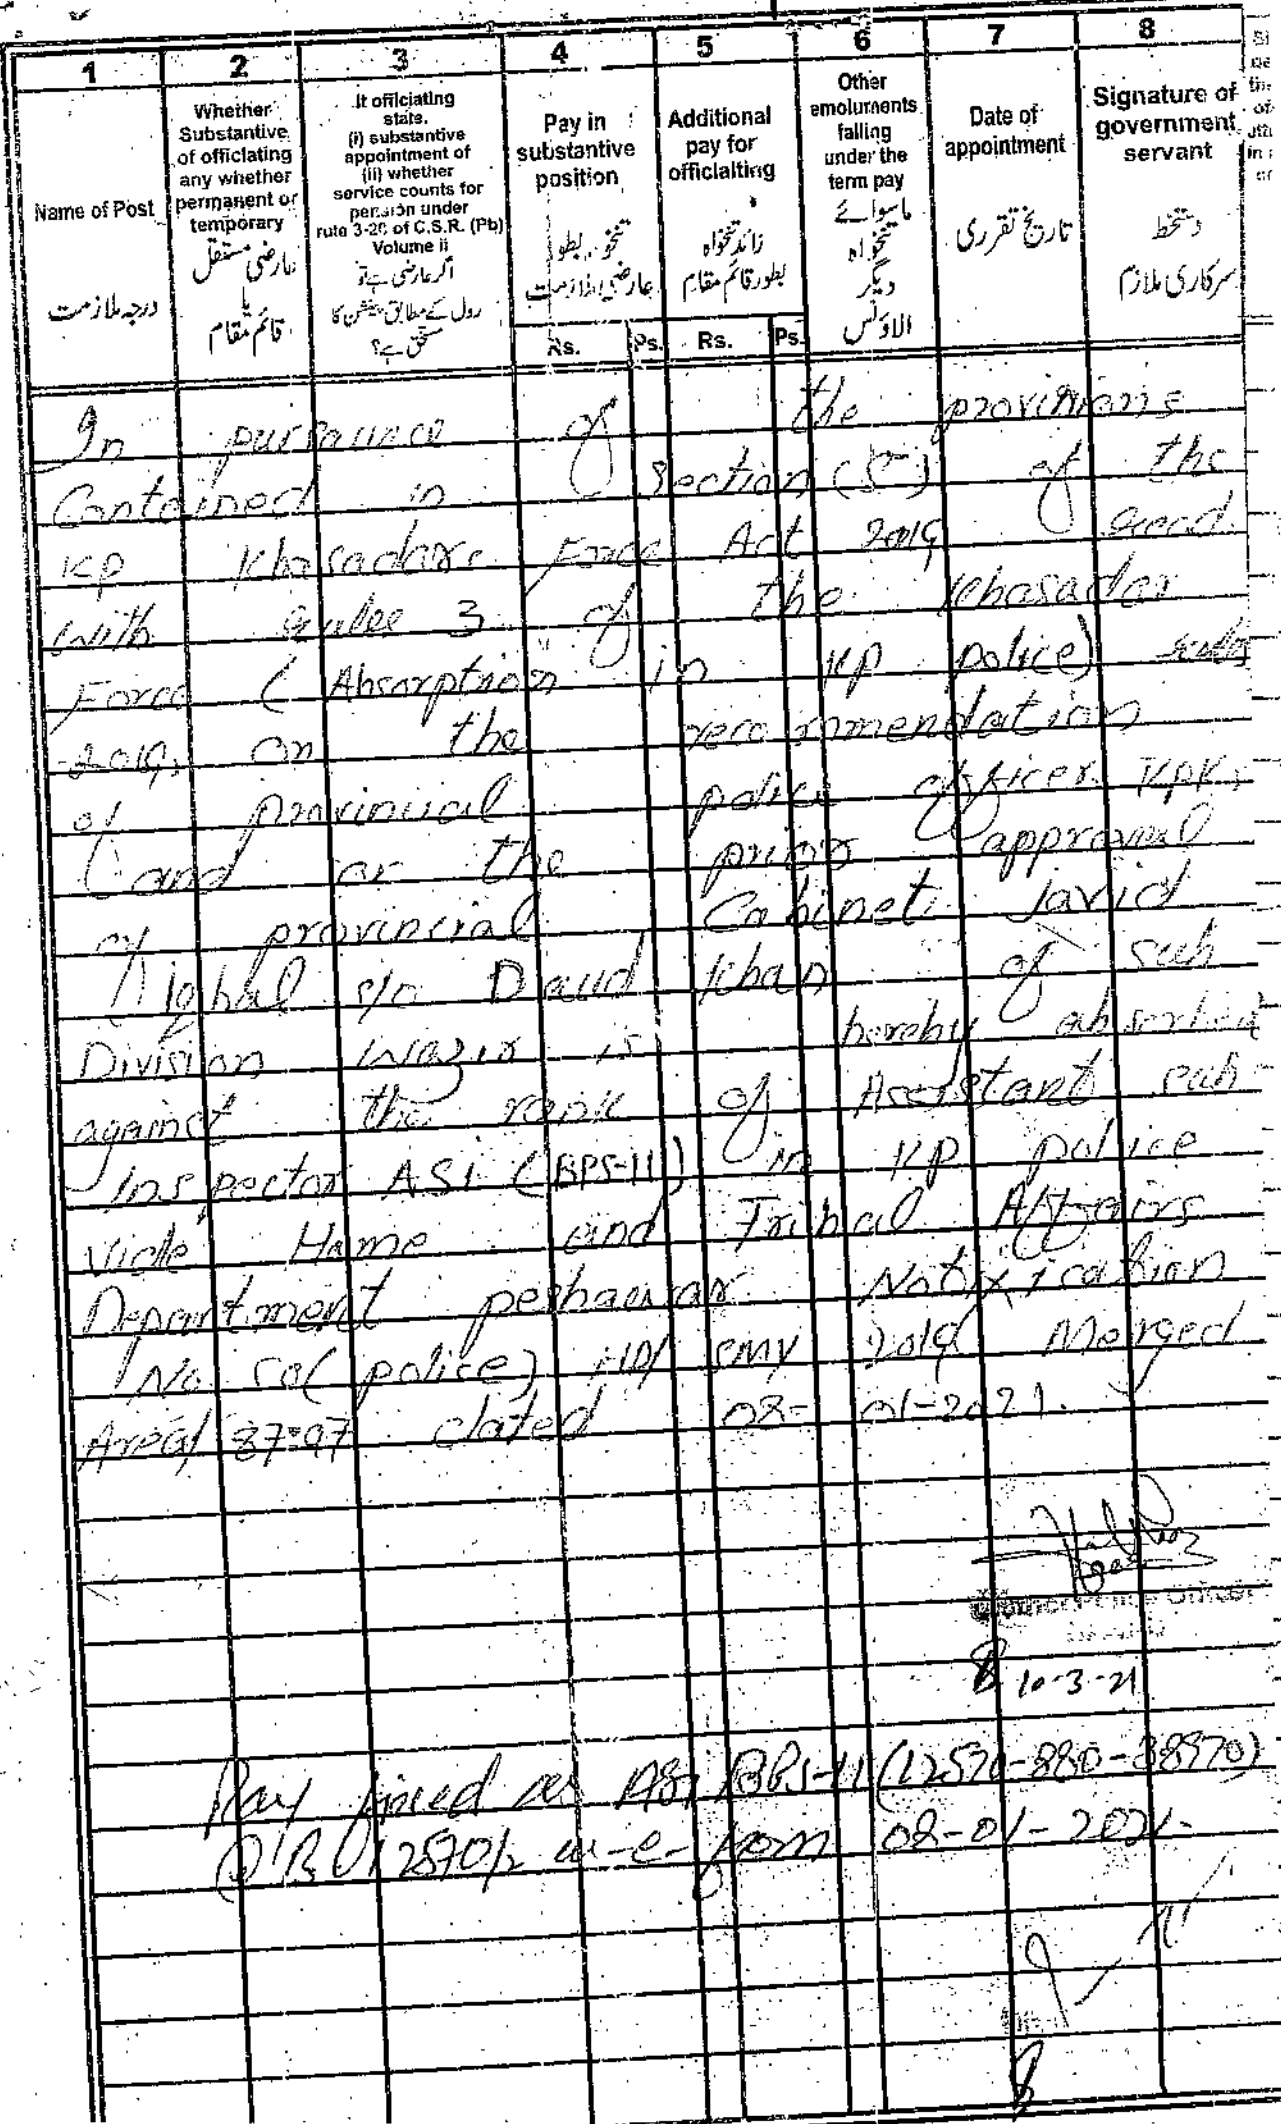 1 2 3 4 5 6 7 8
Name of Post
درجہ ملازمت
Whether
Substantive
of officiating
any whether
permanent or
temporary
عارضی مستقل
یا
قائم مقام
It officiating
state.
(i) substantive
appointment of
(ii) whether
service counts for
pension under
rute 3-20 of C.S.R. (Pb)
Volume ii
اگر عارضی ہے تو
رول کے مطابق پنشن کا
مستحق ہے؟
Pay in
substantive
position
تنخواہ بطور
عارضی ملازمت
Rs. Ps.
Additional
pay for
officialting
زائد تنخواہ
بطور قائم مقام
Rs. Ps.
Other
emoluments
falling
under the
term pay
ماسوائے
تنخواہ
دیگر
الاؤنس
Date of
appointment
تاریخ تقرری
Signature of
government
servant
دستخط
سرکاری ملازم
In pursuance of the provisions
Contained in Section (5) of the
KP Khasadare Force Act 2019 read
with rules 3 of the Khasadar
Force (Absorption in KP police) rules
2019, on the recommendation
of provincial police officer KPK,
and on the prior approval
of provincial Cabinet, Javid
Iqbal s/o Daud Khan of sub
Division wazir is hereby absorbed
against the rank of Assistant sub-
Inspector ASI (BPS-11) in KP police
vide Home and Tribal Affairs
Department peshawar Notification
No. SO(police) HD/ SMY 2019 Merged
Area/ 87-97 dated 08-01-2021.
Police Officer
10-3-21
Pay fixed as ASI BPS-11 (12570-880-38970)
@ Rs 12570/- w-e-from 08-01-2021-